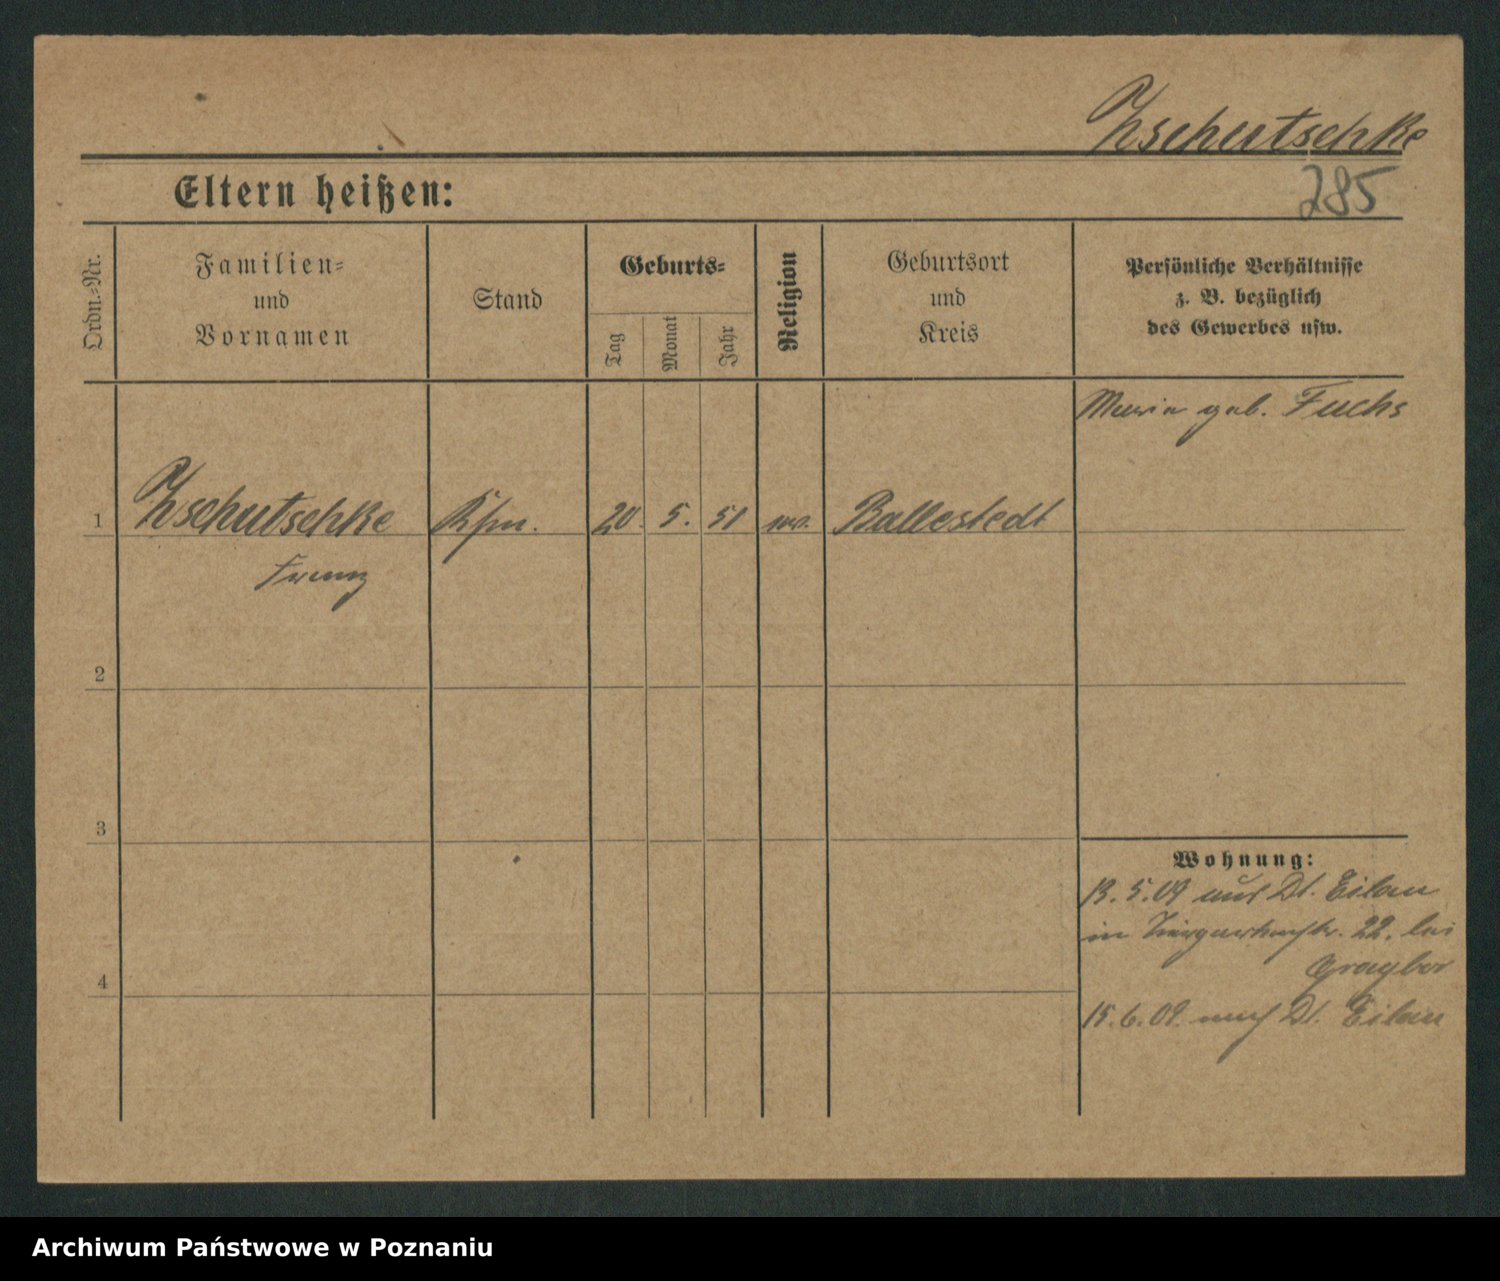 Zschutschke
285
Eltern heißen:
Ordn.-Nr.
Familien-
und
Vornamen
Stand
Geburts-
Tag
Monat
Jahr
Religion
Geburtsort
und
Kreis
Persönliche Verhältnisse
z. B. bezüglich
des Gewerbes usw.
Maria geb. Fuchs
1 Zschutschke Kfm. 20. 5. 51 ev. Ballestedt
Franz
2
3
4
Wohnung:
13. 5. 09 aus Dt. Eilau
in Tiergartenstr. 22. bei
15. 6. 09. nach Dt. Eilau
Archiwum Państwowe w Poznaniu